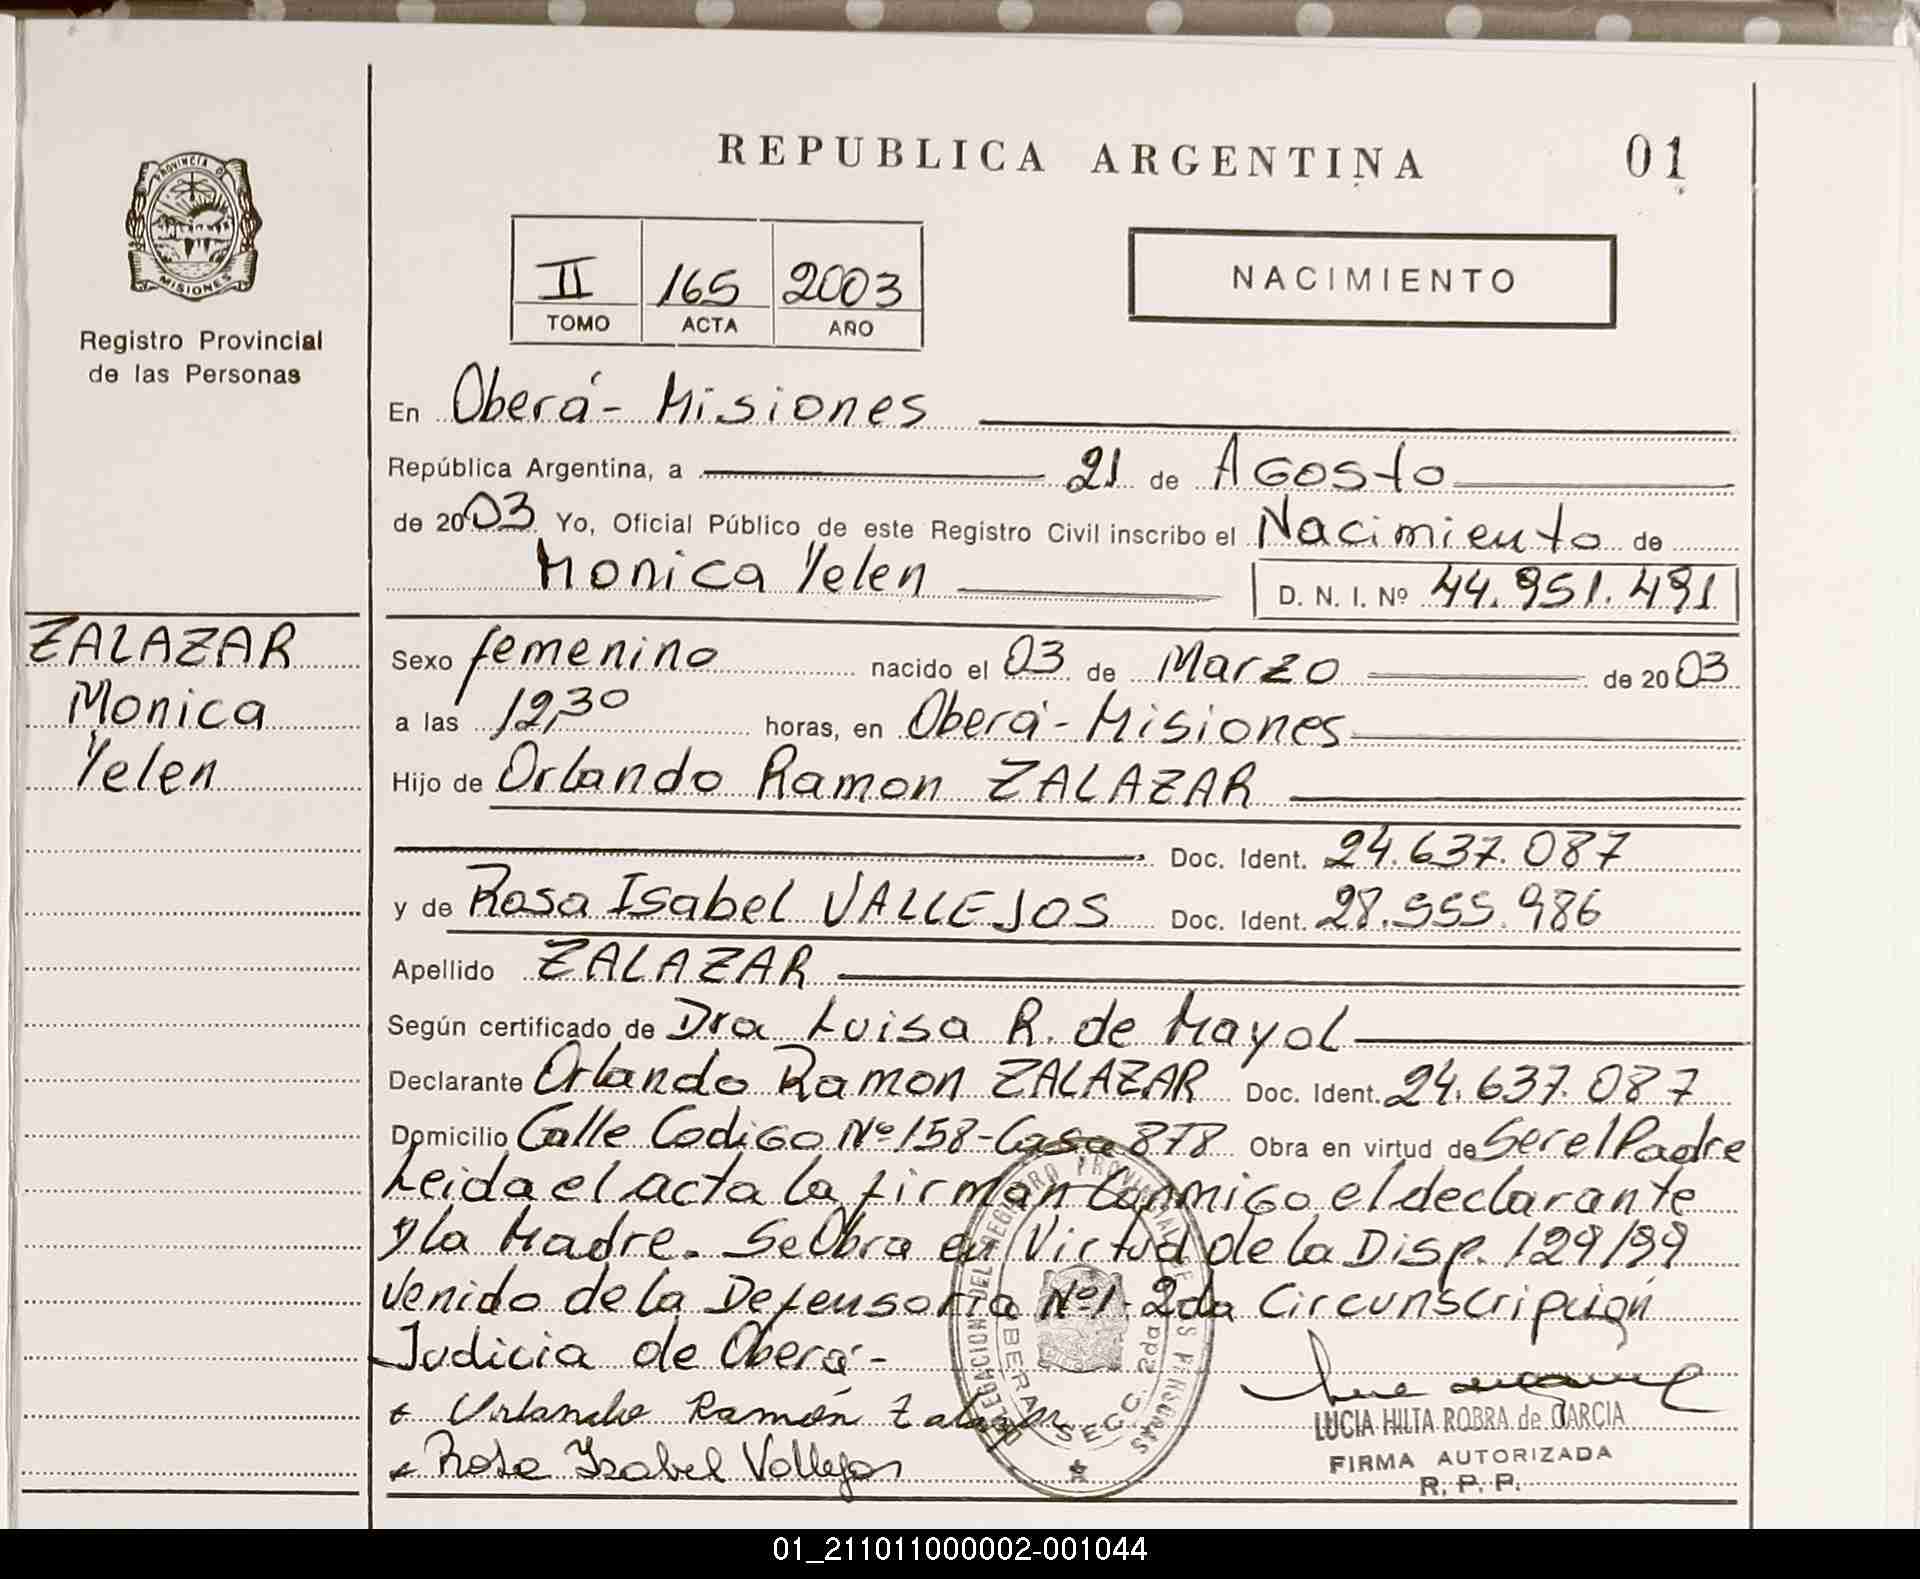 REPUBLICA ARGENTINA 01
PROVINCIA DE
MISIONES
Registro Provincial
de las Personas
II 165 2003
TOMO ACTA AÑO
NACIMIENTO
En Oberá - Misiones
República Argentina, a 21 de Agosto
de 2003 Yo, Oficial Público de este Registro Civil inscribo el Nacimiento de
Monica Yelen D. N. I. Nº 44.951.491
ZALAZAR
Monica
Yelen
Sexo femenino nacido el 03 de Marzo de 2003
a las 12,30 horas, en Oberá - Misiones
Hijo de Orlando Ramon ZALAZAR
Doc. Ident. 24.637.087
y de Rosa Isabel VALLEJOS Doc. Ident. 28.955.986
Apellido ZALAZAR
Según certificado de Dra Luisa R. de Mayol
Declarante Orlando Ramon ZALAZAR Doc. Ident. 24.637.087
Domicilio Calle Codigo Nº 158 - Casa 878 Obra en virtud de Ser el Padre
Leida el acta la firman Conmigo el declarante
y la Madre. Se Obra en Virtud de la Disp. 129/99
Venido de la Defensoria Nº 1 - 2da Circunscripción
Judicia de Oberá -
Orlando Ramón Zalazar
Rosa Isabel Vallejos
DELEGACION DEL REGISTRO PROVINCIAL DE LAS PERSONAS
OBERA SECC. 2da
LUCIA HILTA ROBRA de GARCIA
FIRMA AUTORIZADA
R. P. P.
01_211011000002-001044